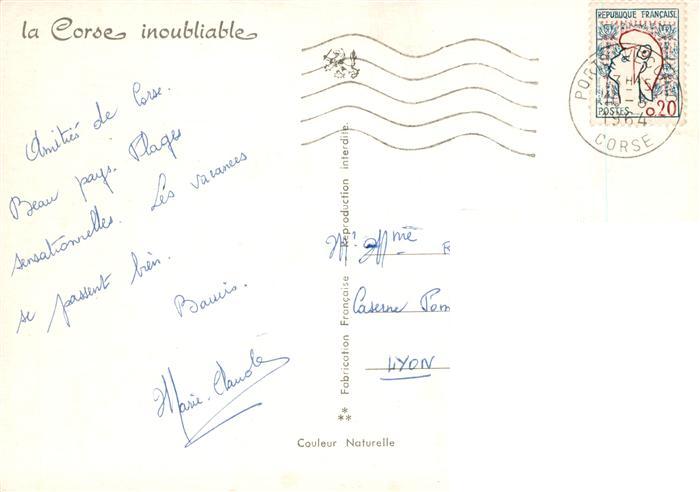 la Corse inoubliable
RÉPUBLIQUE FRANÇAISE
0,20
POSTES
1964
CORSE
Amitiés de Corse.
Beau pays. Plages
sensationnelles. Les vacances
se passent bien.
Baisers.
Marie-Claude
Mr Mme
Caserne Pom
LYON
Fabrication Française — Reproduction interdite.
Couleur Naturelle